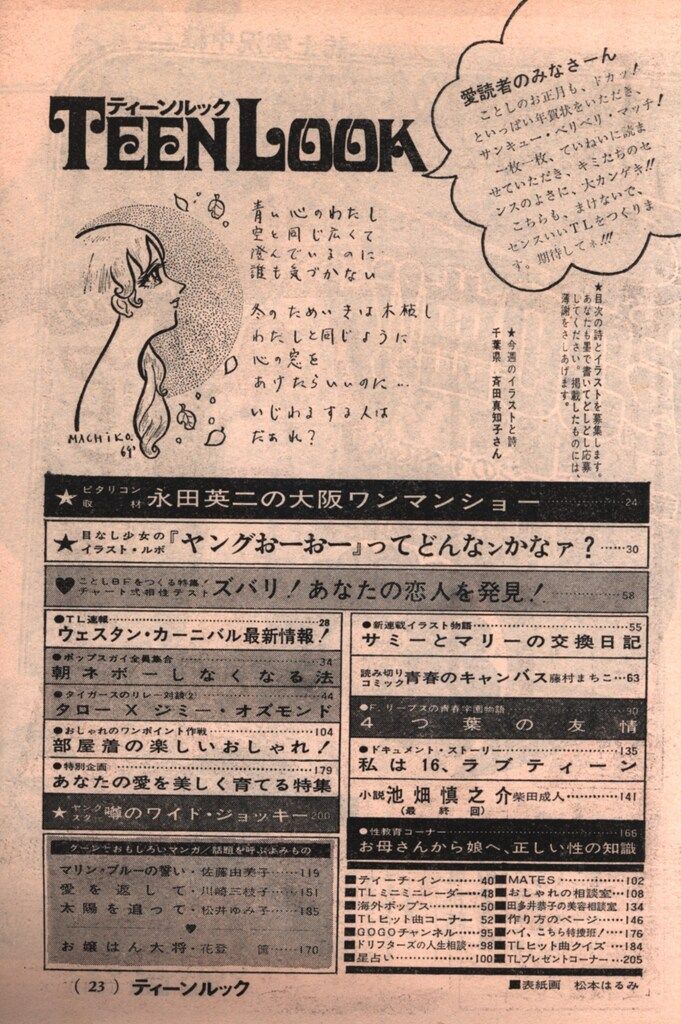 ティーンルック
TEEN LOOK
愛読者のみなさーん
ことしのお正月も、ドカッ!
といっぱい年賀状をいただき、
サンキュー・ベリベリ・マッチ!
一枚一枚、ていねいに読ま
せていただき、キミたちのセ
ンスのよさに、大カンゲキ!!
こちらも、まけないで、
センスいいTLをつくりま
す。期待してネ!!!
青い心のわたし
空と同じ広くて
澄んでいるのに
誰も気づかない
冬のためいきは木枯し
わたしと同じように
心の窓を
あけたらいいのに…
いじわるする人は
だぁれ?
MACHiKO.
69'
★目次の詩とイラストを募集します。
あなたも墨で書いてどしどし応募
してください。掲載したものには、
薄謝をさしあげます。
★今週のイラストと詩
千葉県 斉田真知子さん
★ピタリコン取材 永田英二の大阪ワンマンショー 24
★目なし少女のイラスト・ルポ 『ヤングおーおー』ってどんなンかなァ? 30
♥ことしBFをつくる特集!チャート式相性テスト ズバリ!あなたの恋人を発見! 58
●TL速報 28
ウェスタン・カーニバル最新情報!
●ポップスガイ全員集合 34
朝ネボーしなくなる法
●タイガースのリレー対談② 44
タロー×ジミー・オズモンド
●おしゃれのワンポイント作戦 104
部屋着の楽しいおしゃれ!
●特別企画 179
あなたの愛を美しく育てる特集
★ヤングスター 噂のワイド・ジョッキー 200
グーンとおもしろいマンガ/話題を呼ぶよみもの
マリン・ブルーの誓い・佐藤由美子 119
愛を返して・川崎三枝子 151
太陽を追って・松井ゆみ子 185
♥
お嬢はん大将・花登 筺 170
●新連載イラスト物語 55
サミーとマリーの交換日記
読み切りコミック 青春のキャンバス 藤村まちこ 63
●F.リーブスの青春学園物語 90
4つ葉の友情
●ドキュメント・ストーリー 135
私は16、ラブティーン
小説 池畑慎之介 柴田成人 141
(最終回)
●性教育コーナー 166
お母さんから娘へ、正しい性の知識
■ティーチ・イン 40
■TLミニミニレーダー 48
■海外ポップス 50
■TLヒット曲コーナー 52
■GOGOチャンネル 95
■ドリフターズの人生相談 98
■星占い 100
■MATES 102
■おしゃれの相談室 108
■田多井恭子の美容相談室 134
■作り方のページ 146
■ハイ、こちら特捜班! 176
■TLヒット曲クイズ 184
■TLプレゼントコーナー 205
(23) ティーンルック
■表紙画 松本はるみ